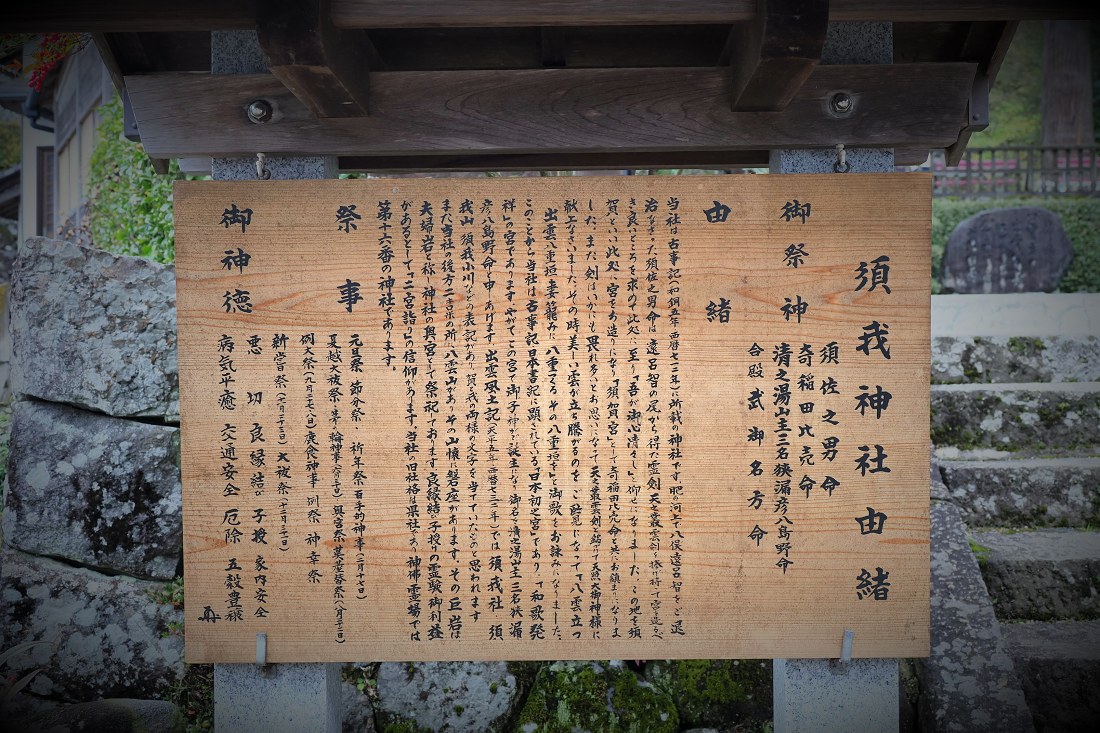 須我神社由緒
御祭神
須佐之男命
奇稲田比売命
清之湯山主三名狭漏彦八島野命
合殿 武御名方命
由緒
当社は古事記(和銅五年 西暦七一二年)に所載の神社です。肥の河上で八俣遠呂智をご退
治なさった須佐之男命は、遠呂智の尾から得た霊剣 天之叢雲剣を
き良いところを求めて此処に至り「吾が御心清々し」と仰せになりました。この地を須
賀といい此処に宮をお造りになり「須賀宮」として奇稲田比売命と共にお鎮まになりま
した。また、剣はいかにも畏れ多いとお思いになって天之叢雲剣と銘けて天照大御神様に
献上なさいました。その時、美しい雲が立ち騰がるのをご覧になって「八雲立つ
出雲八重垣 妻籠みに 八重垣つくる その八重垣を」と御歌をお詠みになりました。
このことから当社は古事記 日本書記に顕されている「日本初之宮」であり、「和歌発
祥」の宮であります。やがてこの宮で御子神がご誕生になり、御名を清之湯山主三名狭漏
彦八島野命と申しあげます。出雲風土記(天平五年 西暦七三三年)では須我社 須
我山 須我小川などの表記があり、賀と我の両様の文字を当てていたものと思われます。
また当社の後方二粁の所に八雲山があり、その山懐に磐座があります。その巨岩は
夫婦岩と称し神社の奥宮として祭祀しております。良縁結び、子授りの霊験御利益
があるとして「二宮詣り」の信仰があります。当社の旧社格は県社であり神佛霊場では
第十六番の神社であります。
祭事
元旦祭 節分祭 祈年祭 百手的神事(二月十七日)
夏越大祓祭・茅の輪神事(六月三十日)奥宮祭
例大祭 鹿食神事 例祭 神幸祭
新嘗祭(十一月二十三日)大祓祭(十二月三十一日)
御神徳
悪切 良縁結び 子授 家内安全
病気平癒 交通安全 厄除 五穀豊穣